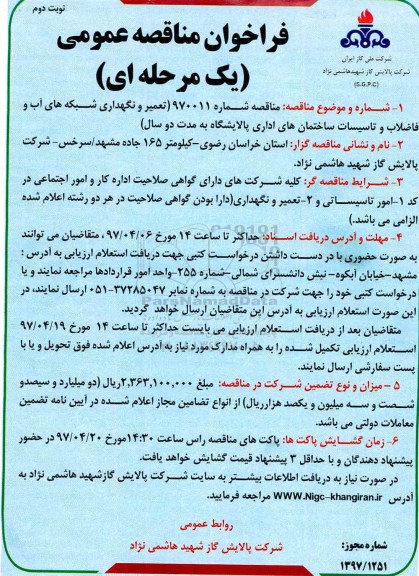 نوبت دوم
فراخوان مناقصه عمومی
(یک مرحله ای)
شرکت ملی گاز ایران
شرکت پالایش گاز شهیدهاشمی نژاد
(S.G.P.C)
۱- شماره و موضوع مناقصه: مناقصه شماره ۹۷۰۰۱۱ (تعمیر و نگهداری شبکه های آب و
فاضلاب و تاسیسات ساختمان های اداری پالایشگاه به مدت دو سال)
۲- نام و نشانی مناقصه گزار: استان خراسان رضوی-کیلومتر ۱۶۵ جاده مشهد/سرخس- شرکت
پالایش گاز شهید هاشمی نژاد.
۳- شرایط مناقصه گر: کلیه شرکت های دارای گواهی صلاحیت اداره کار و امور اجتماعی در
کد ۱-امور تاسیساتی و ۲-تعمیر و نگهداری(دارا بودن گواهی صلاحیت در هر دو رشته اعلام شده
الزامی می باشد.)
۴- مهلت و آدرس دریافت اسناد: حداکثر تا ساعت ۱۴ مورخ ۹۷/۰۴/۰۶، متقاضیان می توانند
به صورت حضوری با در دست داشتن درخواست کتبی جهت دریافت استعلام ارزیابی به آدرس :
مشهد-خیابان آبکوه- نبش دانشسرای شمالی-شماره ۲۵۵-واحد امور قراردادها مراجعه نمایند و یا
درخواست کتبی خود را جهت شرکت در مناقصه به شماره نمابر ۳۷۲۸۵۰۴۷-۰۵۱ ارسال نمایند، در
این صورت استعلام ارزیابی به آدرس این متقاضیان ارسال خواهد گردید.
متقاضیان بعد از دریافت استعلام ارزیابی می بایست حداکثر تا ساعت ۱۴ مورخ ۹۷/۰۴/۱۹
استعلام ارزیابی تکمیل شده را به همراه مدارک مورد نیاز به آدرس اعلام شده فوق تحویل و یا با
پست سفارشی ارسال نمایند.
۵- میزان و نوع تضمین شرکت در مناقصه: مبلغ ۲,۳۶۳,۱۰۰,۰۰۰ریال (دو میلیارد و سیصدو
شصت و سه میلیون و یکصد هزارریال) از انواع تضامین مجاز اعلام شده در آیین نامه تضمین
معاملات دولتی می باشد.
۶- زمان گشایش پاکت ها: پاکت های مناقصه راس ساعت ۱۴:۳۰مورخ ۹۷/۰۴/۲۰ در حضور
پیشنهاد دهندگان و با حداقل ۳ پیشنهاد قیمت گشایش خواهد یافت.
در صورت نیاز به دریافت اطلاعات بیشتر به سایت شرکت پالایش گازشهید هاشمی نژاد به
آدرس WWW.Nigc-khangiran.ir مراجعه فرمایید.
روابط عمومی
شرکت پالایش گاز شهید هاشمی نژاد
شماره مجوز:
۱۳۹۷/۱۲۵۱